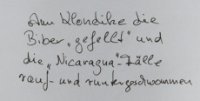 Am Klondike die
Biber „gefellt“ und
die „Nicaragua“-Fälle
rauf- und runtergeschwommen